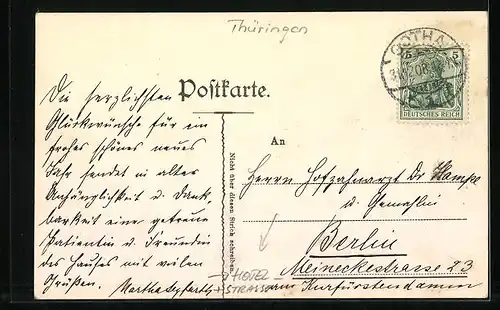 Thüringen
GOTHA
5 5
DEUTSCHES REICH
Postkarte.
Die herzlichsten
Glückwünsche für ein
frohes schönes neues
Jahr sendet in alter
Anhänglichkeit u. Dank-
barkeit eine getreue
Patientin u. Freundin
des Hauses mit vielen
Grüßen. Martha
Nicht über diesen Strich schreiben.
An
Herrn Hofzahnarzt Dr
u. Gemahlin
Berlin
Meineckestrasse 23
am Kurfürstendamm
→ HOTEL
+ STRASSE